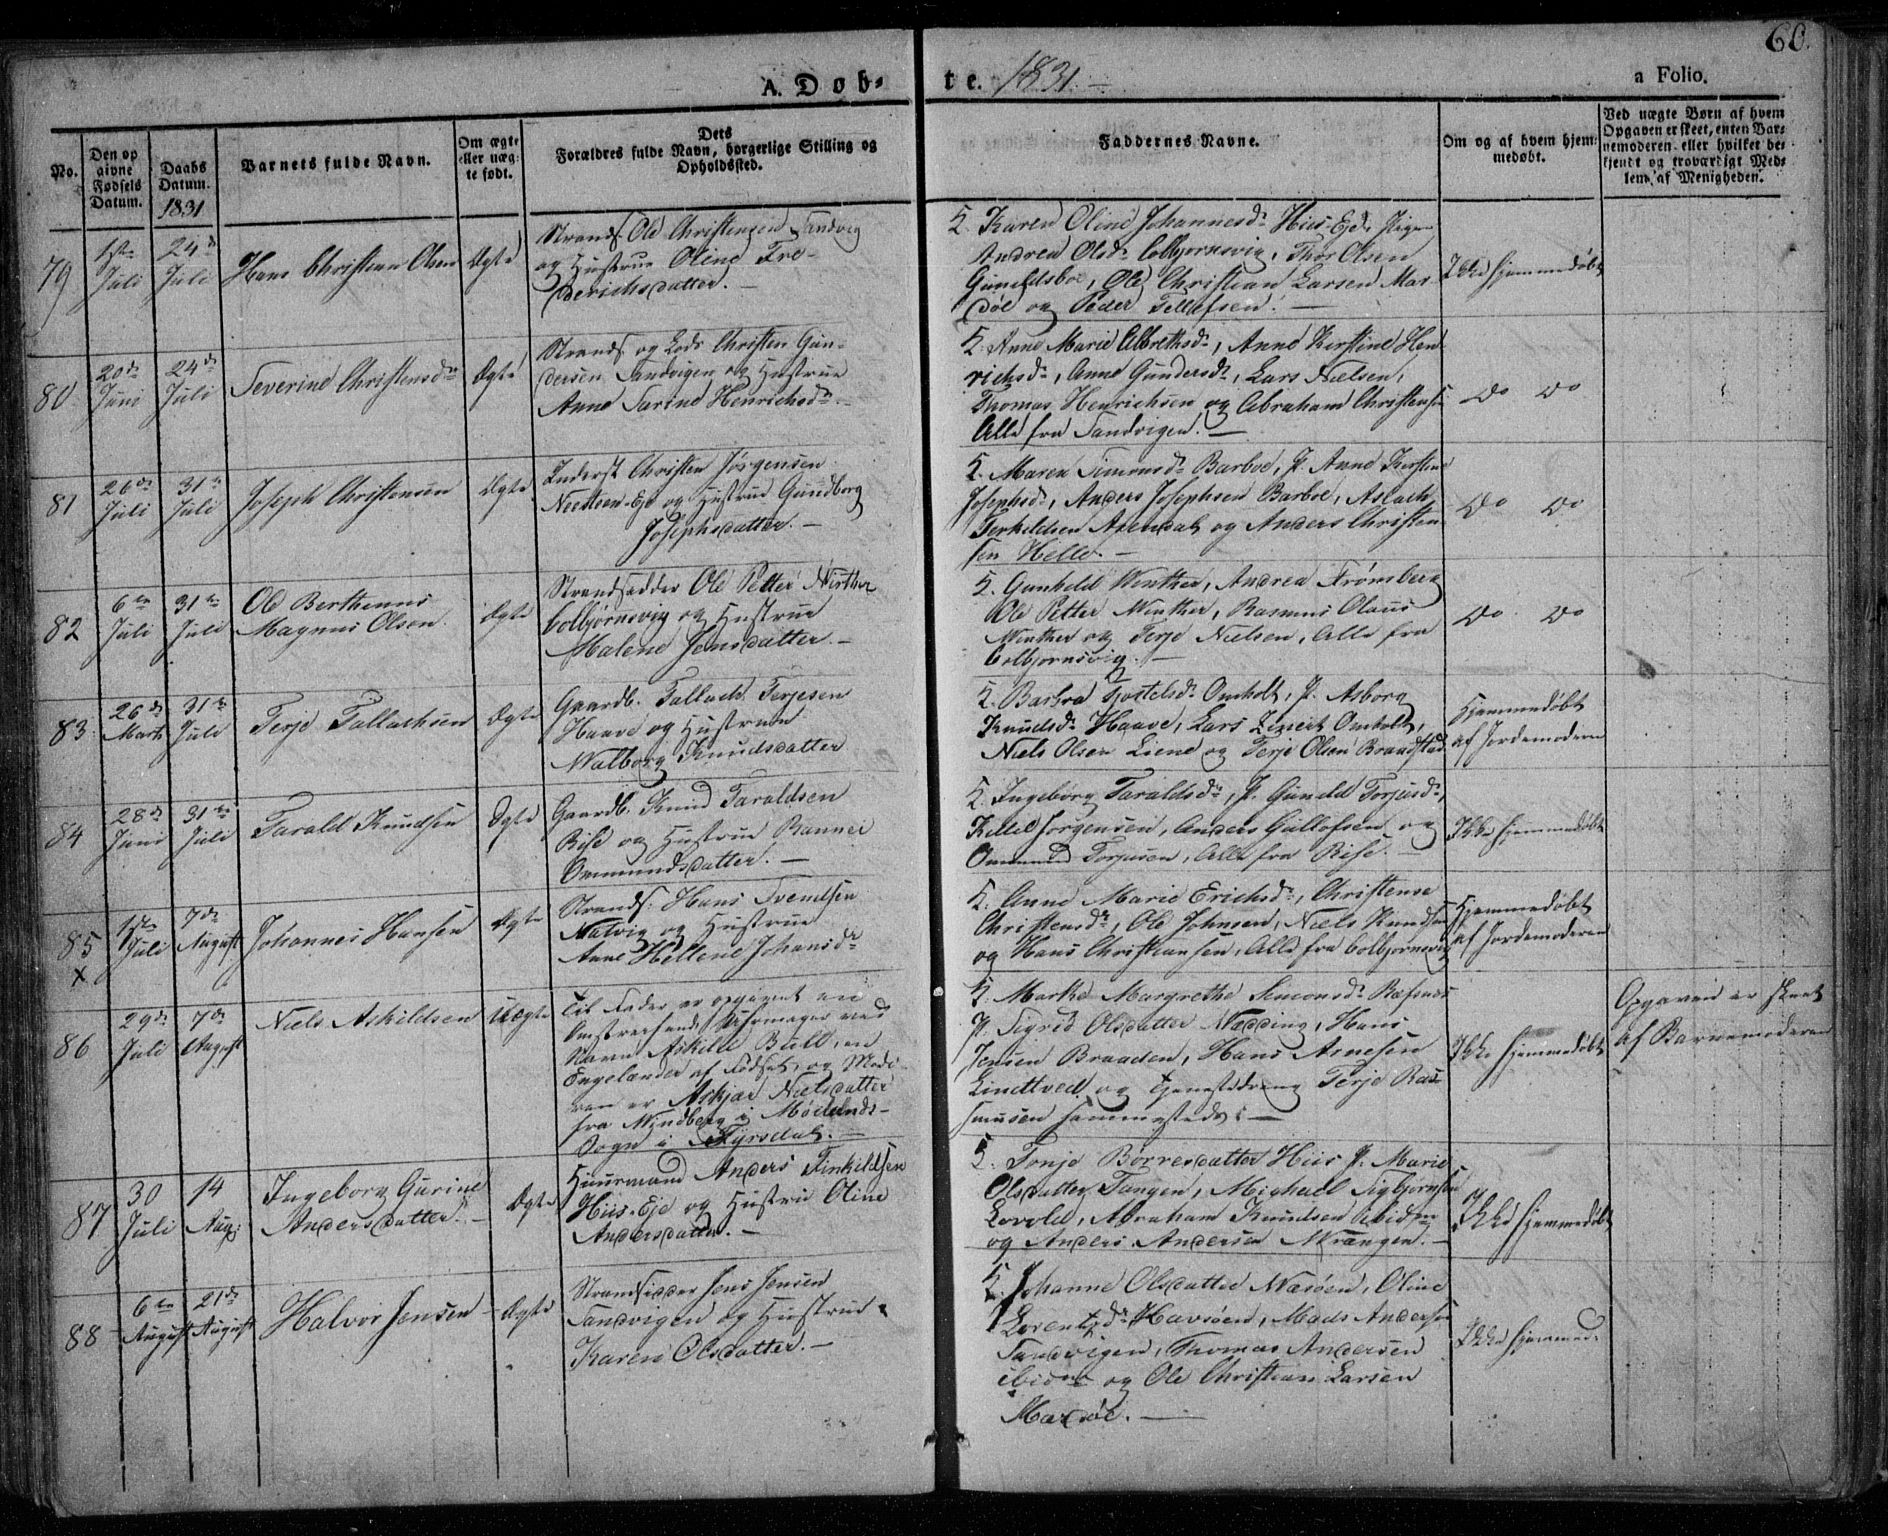 60.
A. Døb-
te. 1831. -
a Folio.
No.
Den op
givne
Fødsels
Datum.
Daabs
Datum.
1831
Barnets fulde Navn.
Om ægte
eller uæg-
te født.
Dets
Forældres fulde Navn, borgerlige Stilling og
Opholdssted.
Faddernes Navne.
Om og af hvem hjem-
medøbt.
Ved uægte Børn af hvem
Opgaven er skeet, enten Bar-
nemoderen eller hvilket be-
kjendt og troværdigt Med-
lem af Menigheden.
79
1ste
Juli
24de
Juli
Hans Christian Olsen
Ægte
Strands. Ole Christensen Sandvig
og Hustrue Oline Fre-
derichsdatter. -
K. Karen Oline Johannesdr Hiis-Eje, Pigen
Andrea Olsdr Colbjørnsvig, Thor Olsen
Guneldsboe, Ole Christian Larsen Mar-
døe og Peder Tellefsen. -
Ikke hjemmedøbt
80
20de
Juni
24de
Juli
Severine Christensdr
Ægte
Strands. og Lods Christen Gun-
dersen Sandvigen og Hustrue
Anne Sarine Henrichsdr. -
K. Anne Marie Albrethsdr, Anne Kirstine Hen
richsdr, Anne Gundersdr, Lars Nielsen,
Thomas Henrichsen og Abraham Christensen
Alle fra Sandvigen. -
Do Do
81
26de
Juli
31te
Juli
Joseph Christensen
Ægte
Inderst Christen Jørgensen
Neesteen-Eje og Hustrue Gundborg
Josephsdatter. -
K. Maren Simonsdr Barboe, P. Anne Kirstine
Josephsdr, Anders Josephsen Barboe, Aslach
Terkildsen Arendal og Anders Christen-
sen Helle. -
Do Do
82
6te
Juli
31te
Juli
Ole Berthenius
Magnus Olsen.
Ægte
Strandsedder Ole Petter Winther
Colbjørnsvig og Hustrue
Malene Jensdatter. -
K. Gunhild Winther, Andrea Frømberg
Ole Petter Winther, Rasmus Olaus
Winther og Terje Nielsen, Alle fra
Colbjørnsvig. -
Do Do
83
26de
Marts
31te
Juli
Terje Tallachsen
Ægte
Gaardb. Tallach Terjesen
Haave og Hustrue
Walborg Knudsdatter
K. Barbra Gostelsdr Omholt, P. Asborg
Knudsdr Haave, Lars Einert Omholt,
Niels Olsen Liene og Terje Olsen Brandstad
Hjemmedøbt
af Jordemoderen
84
28de
Juni
31te
Juli
Tarald Knudsen
Ægte
Gaardb. Knud Taraldsen
Rise og Hustrue Rannei
Ommundsdatter. -
K. Ingeborg Taraldsdr, P. Gunild Torjusdr,
Kittel Jørgensen, Anders Gullofsen og
Ommund Torjusen, Alle fra Rise. -
Ikke hjemmedøbt
85
x
1ste
Juli
7de
August
Johannes Hansen
Ægte
Strands. Hans Svendsen
Natvig og Hustrue
Anne Hellene Johansdr
K. Anne Marie Erichsdr, Christense
Christensdr, Ole Johnsen, Niels Knudsen
og Hans Christiansen, Alle fra Colbjørnsvig
Hjemmedøbt
af Jordemoderen
86
29de
Juli
7de
August
Niels Askildsen
Uægte
Til Fader er opgivet en
Omstreifende Uhrmager ved
Navn Askild Bull, en
Engelænder af Fødsel, og Mode-
ren er Askjær Nielsdatter
fra Windberg i Moelands-
Sogn i Fyrisdal. -
K. Marthe Margrethe Simonsdr Refsnes
P. Sigrid Olsdatter Nedding, Hans
Jensen Braaden, Hans Arnesen
Lindtved og Tjenestdreng Terje Ras-
musen sammesteds. -
Ikke hjemmedøbt
Opgaven er skeet
af Barnemoderen
87
30
Juli
14
Aug.
Ingeborg Gurine
Andersdatter. -
Ægte
Huusmand Anders Finkildsen
Hiis-Eje og Hustrue Oline
Andersdatter. -
K. Tonje Børresdatter Hiis P. Marie
Olsdatter Tangen, Michael Sigbjørnsen
Lovold, Abraham Knudsen ibidm
og Anders Andersen Wrangen. -
Ikke hjemmedøbt
88
6te
August
21de
August
Halvor Jensen -
Ægte
Strandsidder Jens Jensen
Sandvigen og Hustrue
Karen Olsdatter. -
K. Johanne Olsdatter Narøen, Oline
Lorentzdr Havsøen, Mads Andersen
Sandvigen, Thomas Andersen
ibidm og Ole Christian Larsen
Mardøe. -
Ikke hjemmed: